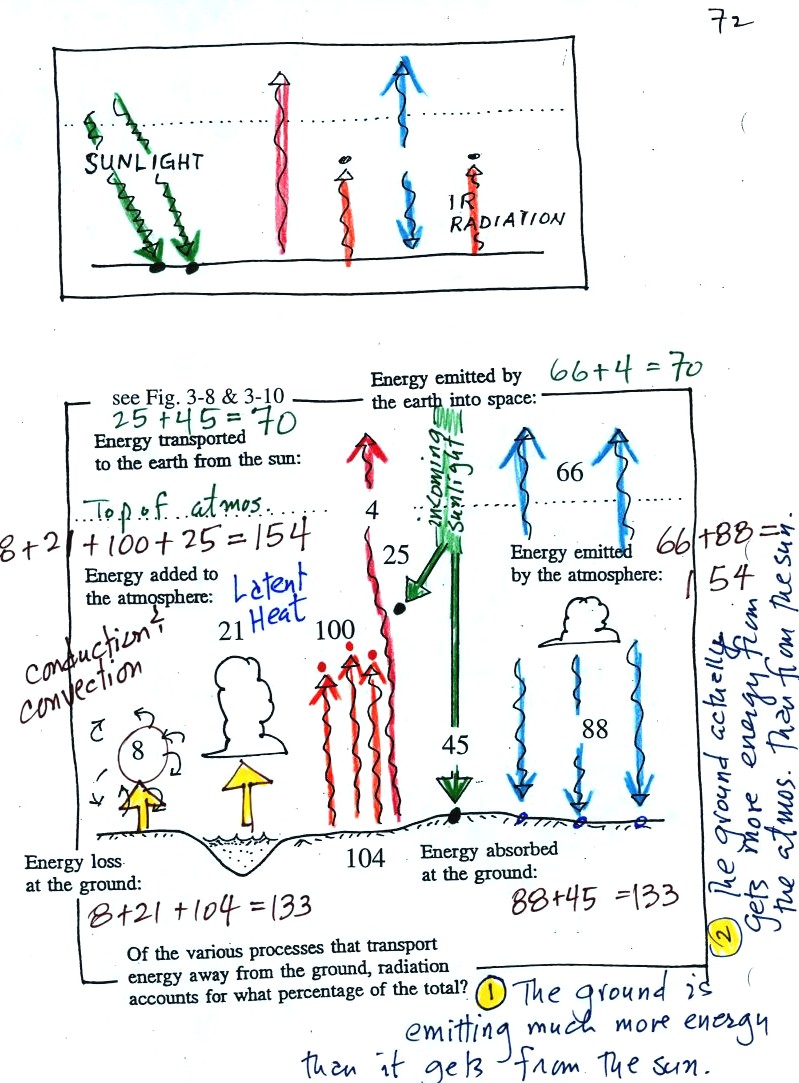 72
SUNLIGHT
IR
RADIATION
Energy emitted by
the earth into space:
66+4 = 70
see Fig. 3-8 & 3-10
25+45=70
Energy transported
to the earth from the sun:
incoming
sunlight
66
Top of atmos.
4
8+21+100+25=154
25
Energy emitted
by the atmosphere:
66+88=
154
Energy added to
the atmosphere:
Latent
Heat
21
100
conduction &
convection
8
45
88
104
Energy loss
at the ground:
8+21+104=133
Energy absorbed
at the ground:
88+45=133
Of the various processes that transport
energy away from the ground, radiation
accounts for what percentage of the total?
1 The ground is
emitting much more energy
than it gets from the sun.
2 The ground actually
gets more energy from
the atmos. than from the sun.